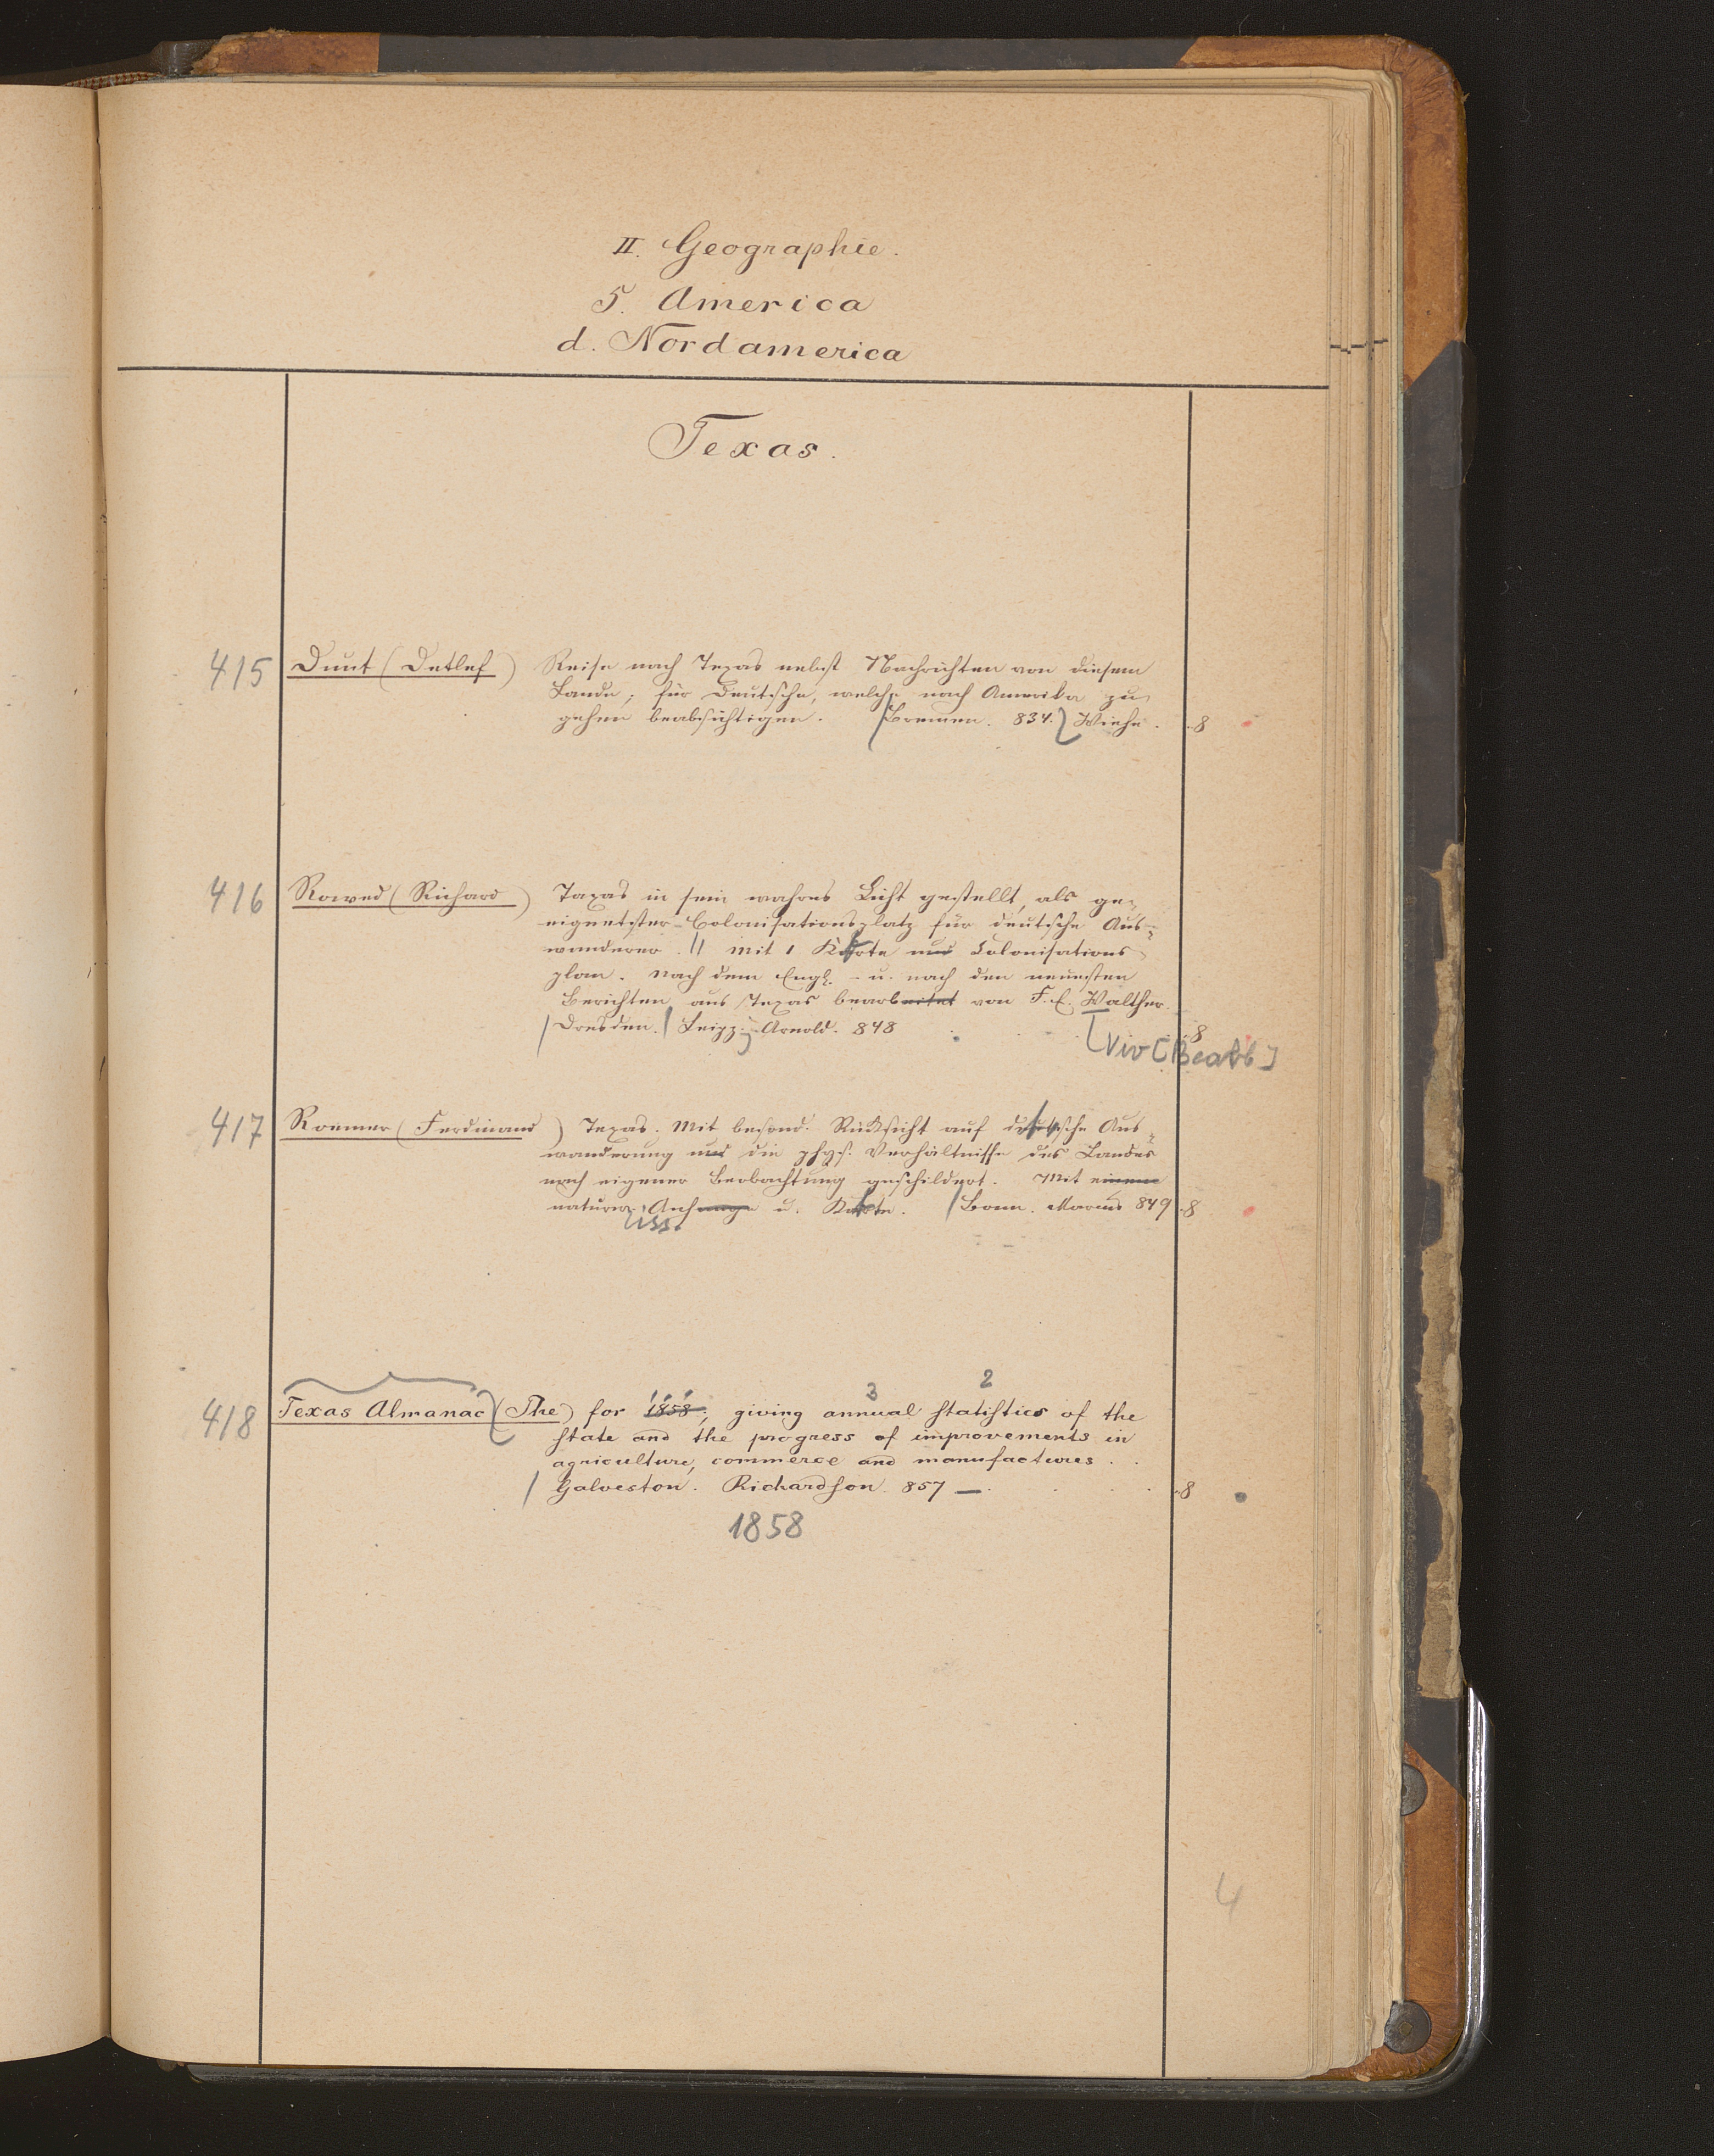 II. Geographie.
5. America
d. Nordamerica
Texas.
415 Dunt (Detlef) Reise nach Texas nebst Nachrichten von diesem
Lande; für Deutsche, welche nach Amerika zu
gehen beabsichtigen. Bremen. 834. Wiehe. 8
416 Rowed (Richard) Texas in sein wahres Licht gestellt, als ge-
eignetster Colonisationsplatz für deutsche Aus-
wanderer. Mit 1 Karte und Colonisations
plan. Nach dem Engl. u. nach den neuesten
Berichten aus Texas bearbeitet von F. E. Walther.
Dresden. Leipz. Arnold. 848 8
[Viv [Bearb]
417 Roemer (Ferdinand) Texas. Mit besond. Rücksicht auf deutsche Aus-
wanderung und die phys. Verhältnisse des Landes
nach eigener Beobachtung geschildert. Mit einem
naturw. Anhange u. Karte. Bonn. Marcus 849 8
iss.
3 2
418 Texas Almanac (The) for 1858; giving annual statistics of the
state and the progress of improvements in
agriculture, commerce and manufactures.
Galveston. Richardson. 857 — 8
1858
4